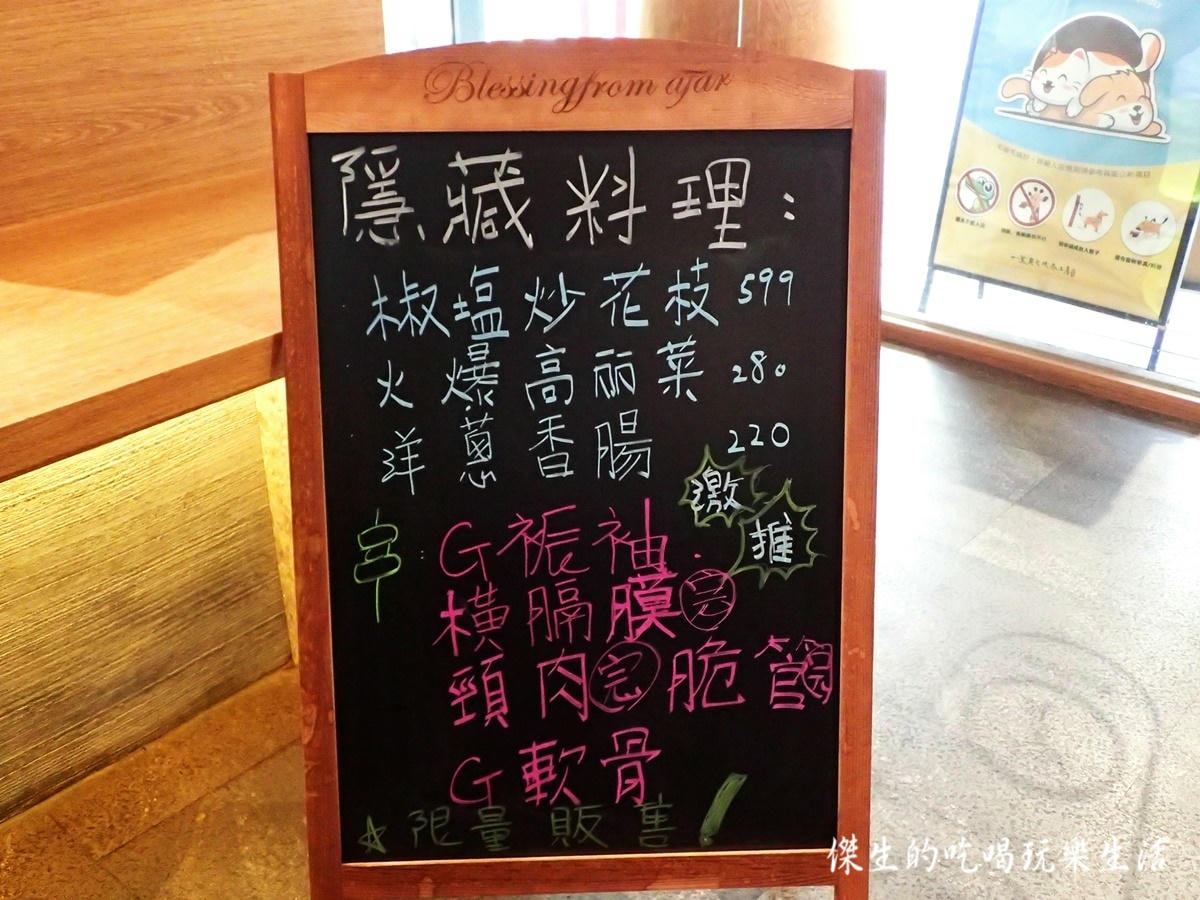 Blessing from afar
隱藏料理:
椒塩炒花枝 599
火爆高丽菜 280
洋蔥香腸 220
激推
串: G裖袖.
橫膈膜 完
頸肉 完 脆管 完
G軟骨
☆限量販售!
傑生的吃喝玩樂生活